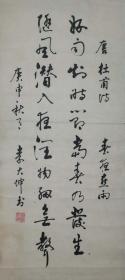 唐杜甫詩 春夜喜雨
好雨知時節當春乃發生
隨風潛入夜潤物細無聲
庚申秋 李大坤書